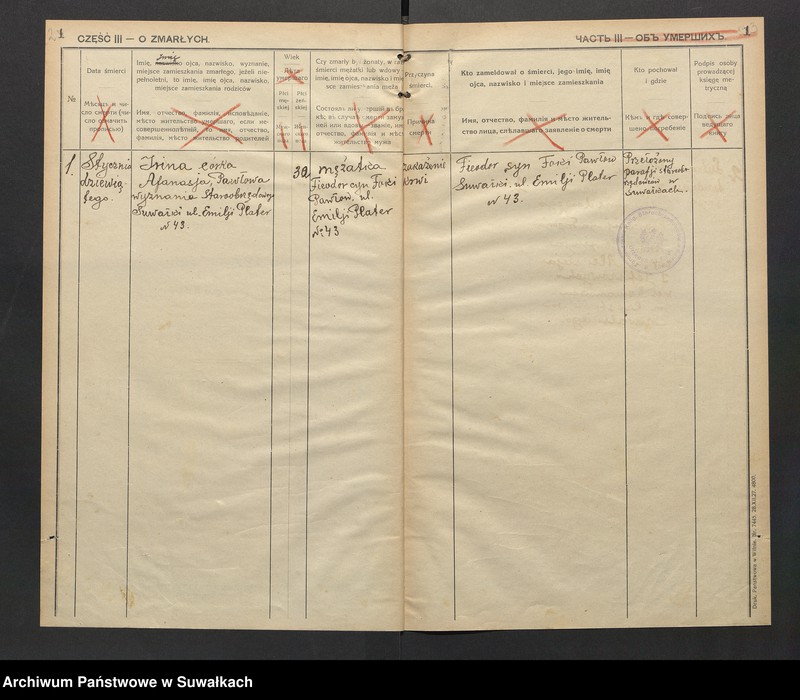 1
CZĘŚĆ III — O ZMARŁYCH.
ЧАСТЬ III — ОБЪ УМЕРШИХЪ.
1
№
Data śmierci
Imię, ojca, nazwisko, wyznanie,
miejsce zamieszkania zmarłego, jeżeli nie-
pełnoletni, to imię, imię ojca, nazwisko,
miejsce zamieszkania rodziców
Имя, отчество, фамилія, исповѣданіе,
мѣсто жительства умершаго, если не-
совершеннолѣтній, то имя, отчество,
фамилія, мѣсто жительства родителей
Wiek
Płci
mę-
skiej
Płci
żeń-
skiej
Czy zmarły był żonaty, w
śmierci mężatki lub wdowy
imię, imię ojca, nazwisko i
sce zamieszkania męża
Przyczyna
śmierci.
Причина
смерти
Kto zameldował o śmierci, jego imię, imię
ojca, nazwisko i miejsce zamieszkania
Имя, отчество, фамилія и мѣсто житель-
ство лица, сдѣлавшаго заявленіе о смерти
Kto pochował
i gdzie
Кѣмъ и гдѣ совер-
шено погребеніе
Podpis osoby
prowadzącej
księgę me-
tryczną
Подпись лица
ведущаго
книгу
1.
Stycznia
dziewią
tego.
Irina córka
Afanasja, Pawłowa
wyznania Staroobrzędowego
Suwałki ul. Emilji Plater
№ 43.
32
mężatka
Fieodor syn Foki
Pawłow, ul.
Emilji Plater
№ 43
zakażenie
krwi
Fieodor syn Foki Pawłow
Suwałki, ul. Emilji Plater
№ 43.
Przełożony
parafji staroob
rzędowców w
Suwałkach.
Druk. Państwowa w Wilnie.
Archiwum Państwowe w Suwałkach